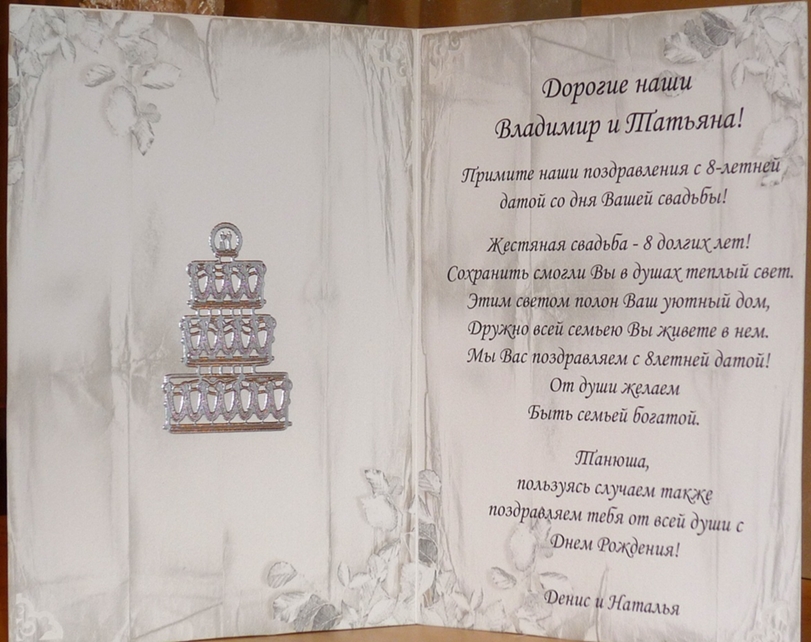 Дорогие наши
Владимир и Татьяна!
Примите наши поздравления с 8-летней
датой со дня Вашей свадьбы!
Жестяная свадьба - 8 долгих лет!
Сохранить смогли Вы в душах теплый свет.
Этим светом полон Ваш уютный дом,
Дружно всей семьею Вы живете в нем.
Мы Вас поздравляем с 8летней датой!
От души желаем
Быть семьей богатой.
Танюша,
пользуясь случаем также
поздравляем тебя от всей души с
Днем Рождения!
Денис и Наталья